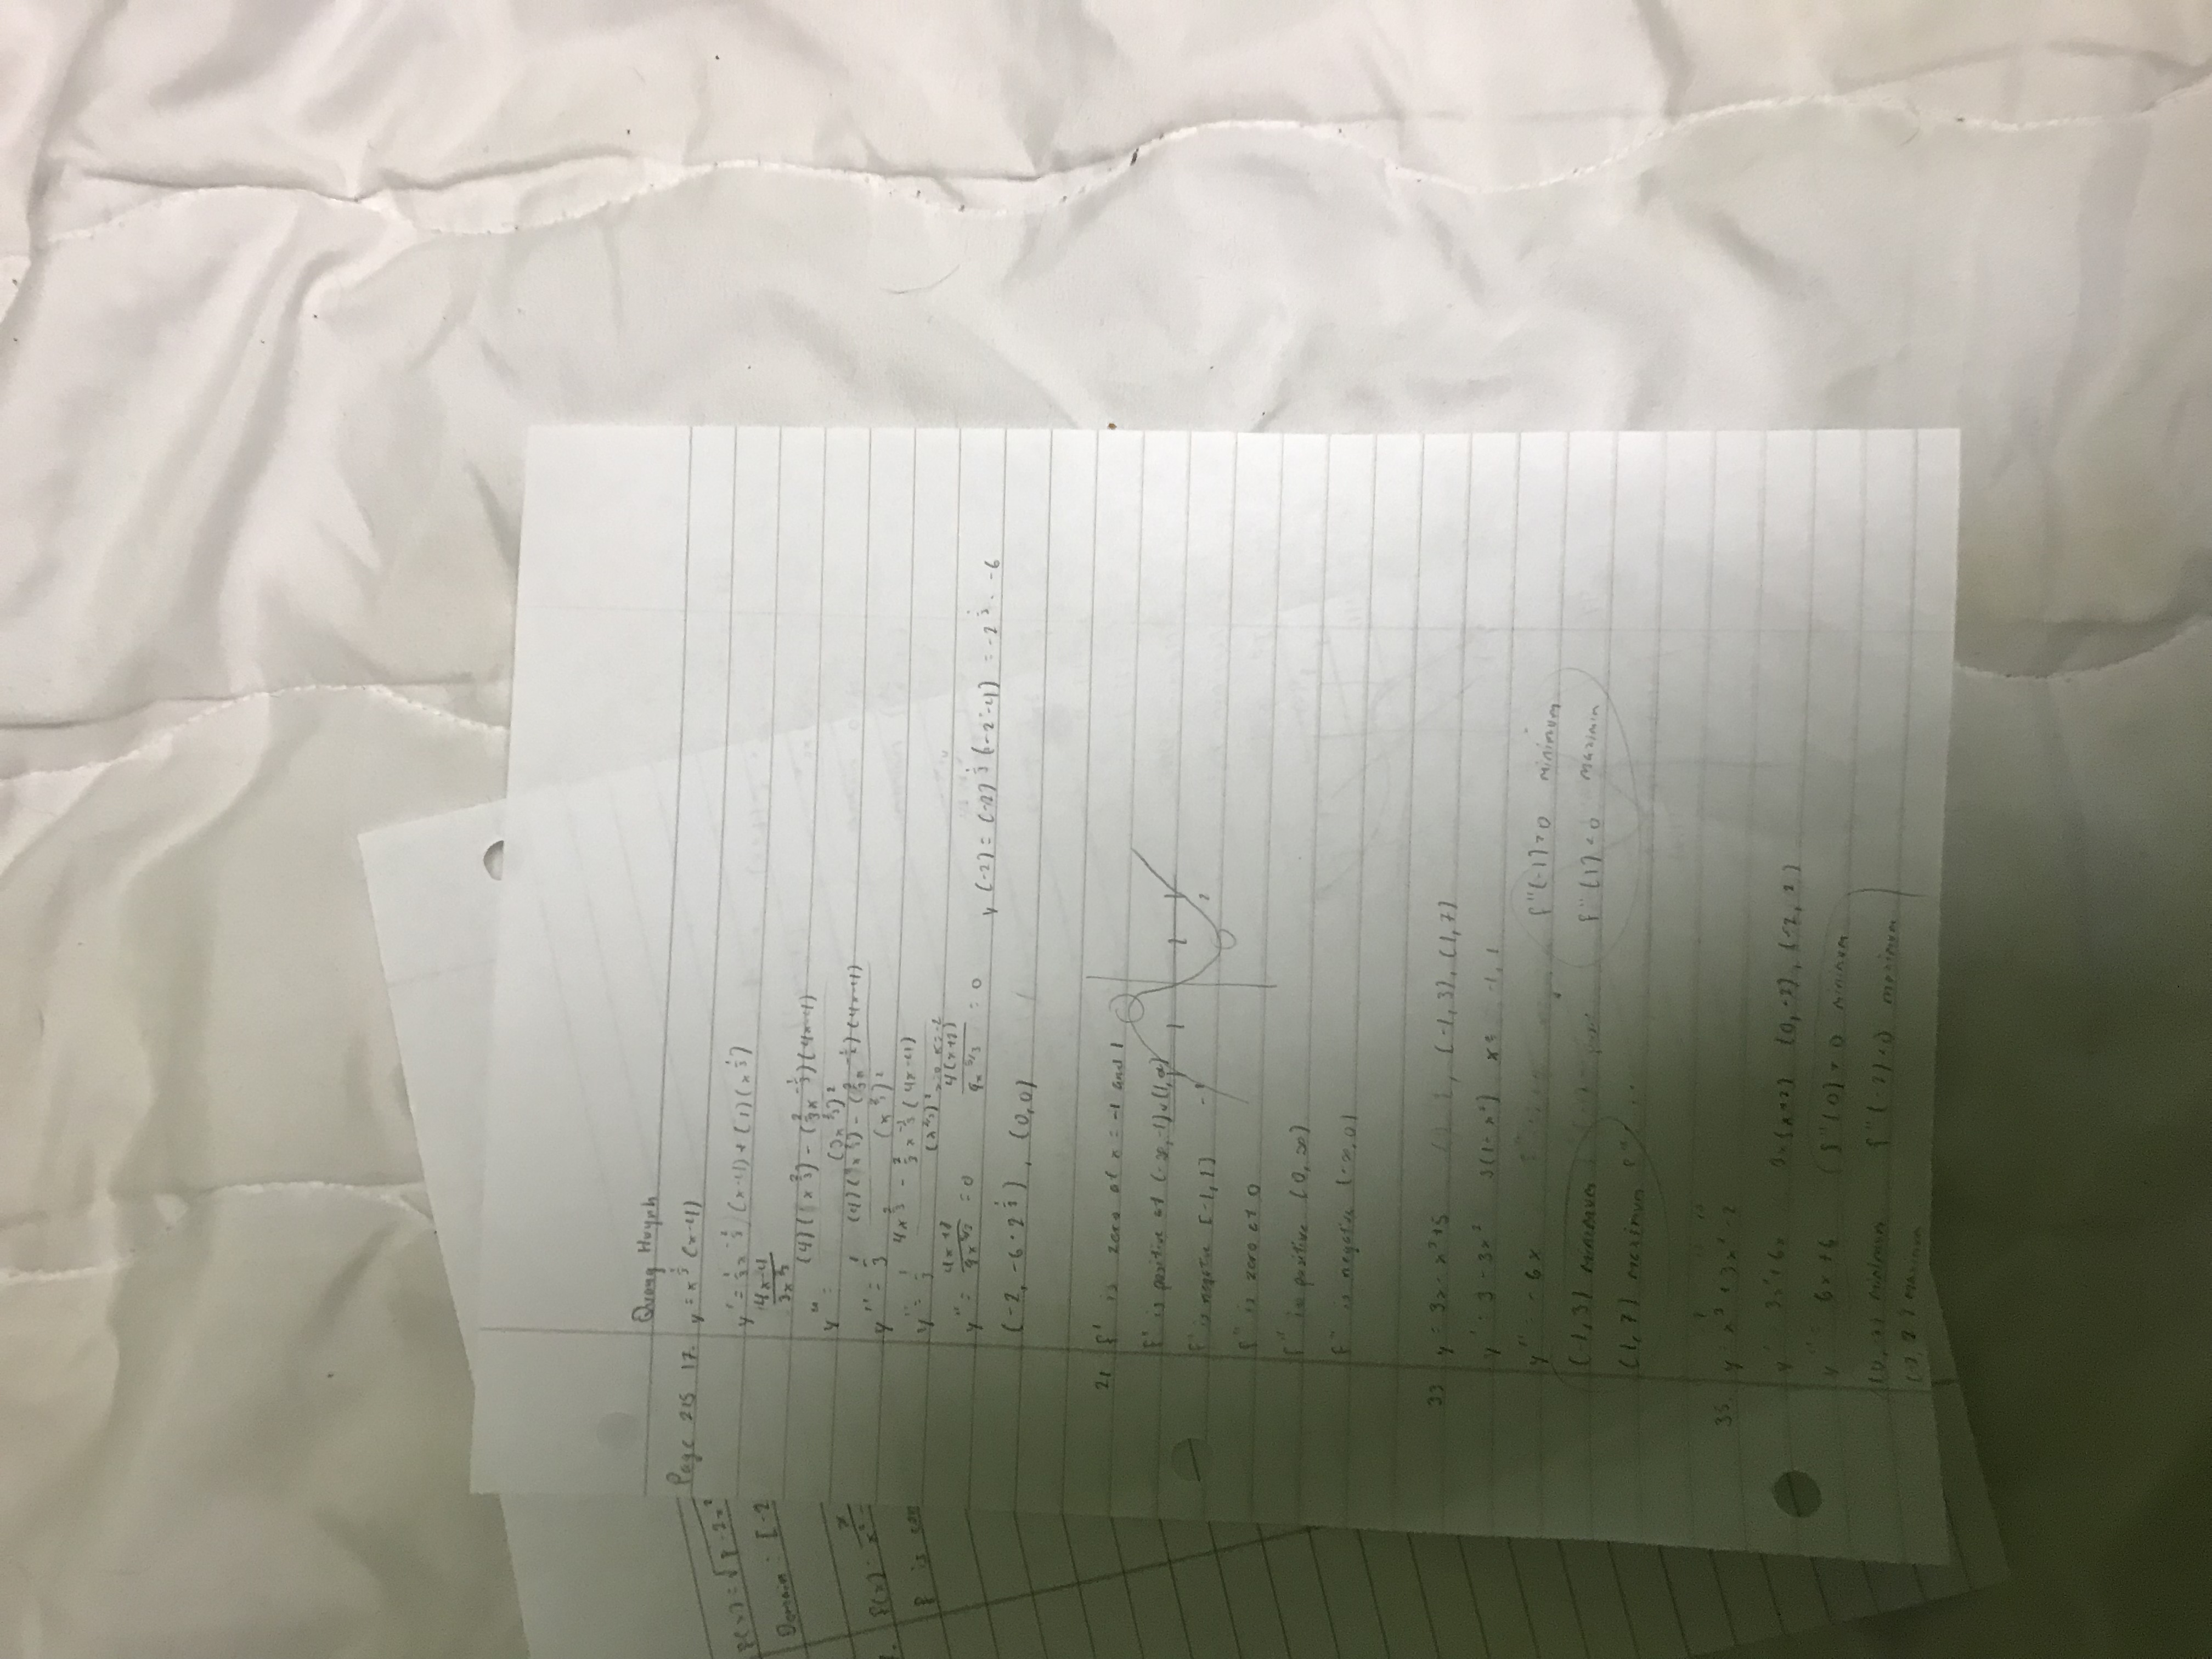 Quang Huynh
Page 215 17. y = x^(1/3) (x-4)
y' = 1/3 x^(-2/3) (x-4) + (1)(x^(1/3))
4x-4 / 3x^(2/3)
y'' = (4)(x^(2/3)) - (2/3 x^(-1/3))(4x-4) / (3x^(2/3))^2
y'' = 1/3 (4)(x^(2/3)) - (2/3 x^(-1/3))(4x-4) / (x^(2/3))^2
y'' = 1/3 4x^(2/3) - 2/3 x^(-1/3) (4x-4) / (x^(2/3))^2
x=0 x=-2
y'' = 4x+8 / 9x^(5/3) = 0 4(x+2) / 9x^(5/3) = 0 y(-2) = (-2)^(1/3) (-2-4) = -2^(1/3) · -6
(-2, -6·2^(1/3)), (0,0)
21 f' is zero at x = -1 and 1
f' is positive at (-∞,-1)∪(1,∞)
f' is negative [-1,1]
f'' is zero at 0
f'' is positive (0,∞)
f'' is negative (-∞,0)
2
33 y = 3x - x^3 + 5 (-1,3), (1,7)
y' = 3 - 3x^2 3(1-x^2) x = -1, 1
y'' = -6x f''(-1) > 0 minimum
(-1,3) minimum f''(1) < 0 maximum
(1,7) maximum
35. y = x^3 + 3x^2 - 2
y' = 3x^2+6x 3x(x+2) (0,-2), (-2,2)
y'' = 6x+6 f''(0) > 0 minimum
minimum f''(-2) < 0 maximum
maximum
f(x) = √8-2x^2
Domain: [-2
f(x) = x / x^2 -
f is con